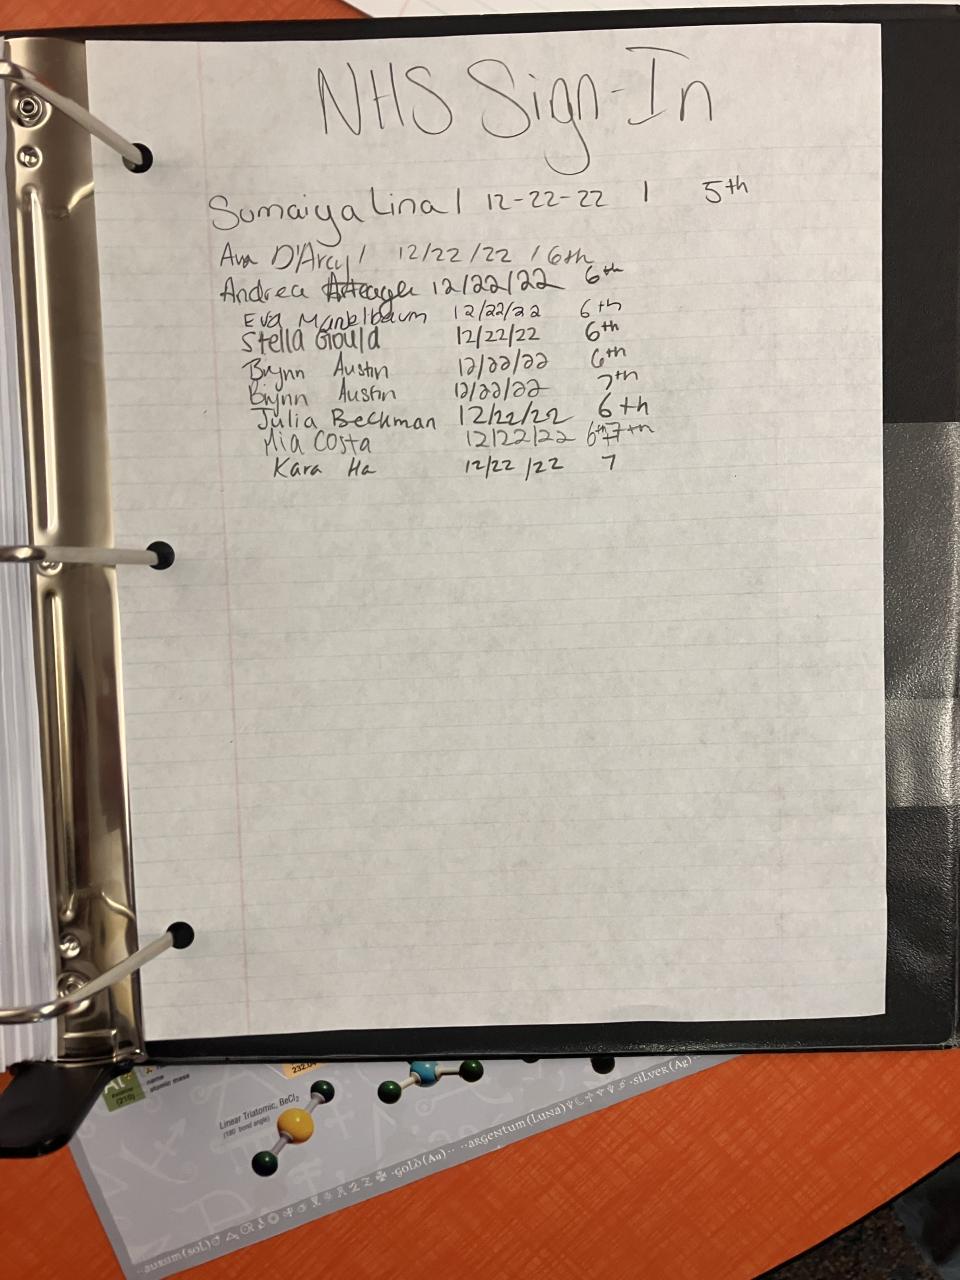 NHS Sign-In
Sumaiya Lina | 12-22-22 | 5th
Ava D'Arcy / 12/22/22 / 6th
Andrea Arteaga 12/22/22 6th
Eva Mankelbaum 12/22/22 6th
Stella Gould 12/22/22 6th
Brynn Austin 12/22/22 6th
Brynn Austin 12/22/22 7th
Julia Beckman 12/22/22 6th
Mia Costa 12/22/22 6th 7th
Kara Ha 12/22/22 7
(210)
name
atomic mass
Linear Triatomic, BeCl₂
(180° bond angle)
aurum (sol)
gold (Au)
argentum (Luna)
silver (Ag)